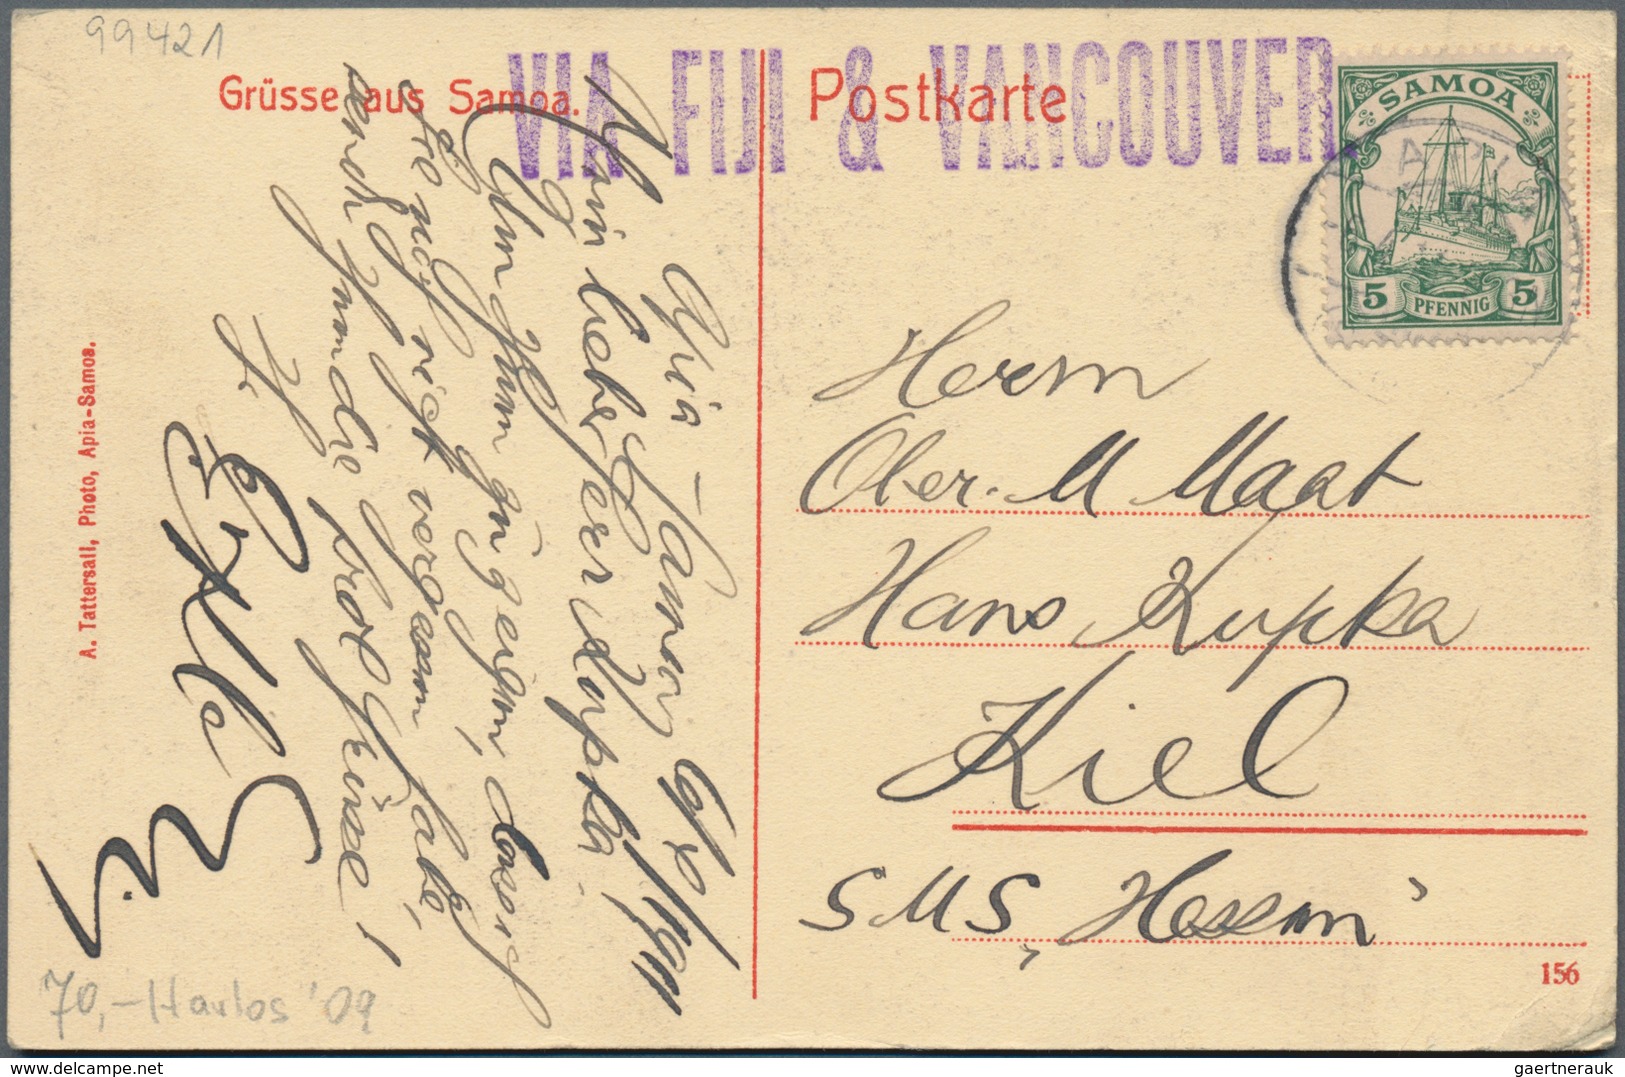 99421
Grüsse aus Samoa.
VIA FIJI & VANCOUVER.
Postkarte
SAMOA
5 PFENNIG 5
APIA
Apia-Samoa
Mein lieber Herr Kupka!
Um Ihnen zu zeigen, dass ich
Sie noch nicht vergessen habe,
sende Ihnen die
Grüsse!
Ihr
Herrn
Ober. M Maat
Hans Kupka
Kiel
S M S „Hessen"
A. Tattersall, Photo, Apia-Samoa.
156
70,- Harlos '09
gaertnerauk